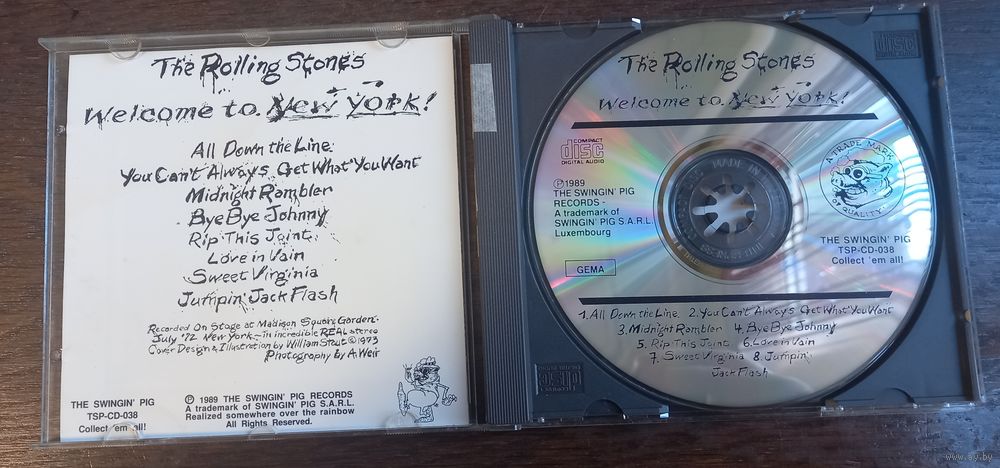 The Rolling Stones
Welcome to. New York!
All Down the Line.
You Can't Always Get What You Want
Midnight Rambler
Bye Bye Johnny
Rip This Joint.
Love in Vain
Sweet Virginia
Jumpin' Jack Flash
Recorded On Stage at Madison Square Garden.
July '72 New York - in incredible REAL stereo
Cover Design & Illustration by William Stout © 1973
Photography by A. Weir
THE SWINGIN' PIG
TSP-CD-038
Collect 'em all!
℗ 1989 THE SWINGIN' PIG RECORDS
A trademark of SWINGIN' PIG S.A.R.L.
Realized somewhere over the rainbow
All Rights Reserved.
The Rolling Stones
Welcome to. New York!
COMPACT
disc
DIGITAL AUDIO
℗1989
THE SWINGIN' PIG
RECORDS -
A trademark of
SWINGIN' PIG S.A.R.L.
Luxembourg
GEMA
MADE IN
A TRADE MARK
OF QUALITY
THE SWINGIN' PIG
TSP-CD-038
Collect 'em all!
1. All Down the Line. 2. You Can't Always Get What You Want
3. Midnight Rambler 4. Bye Bye Johnny
5. Rip This Joint. 6. Love in Vain
7. Sweet Virginia 8. Jumpin'
Jack Flash
disc
disc
www.ay.by